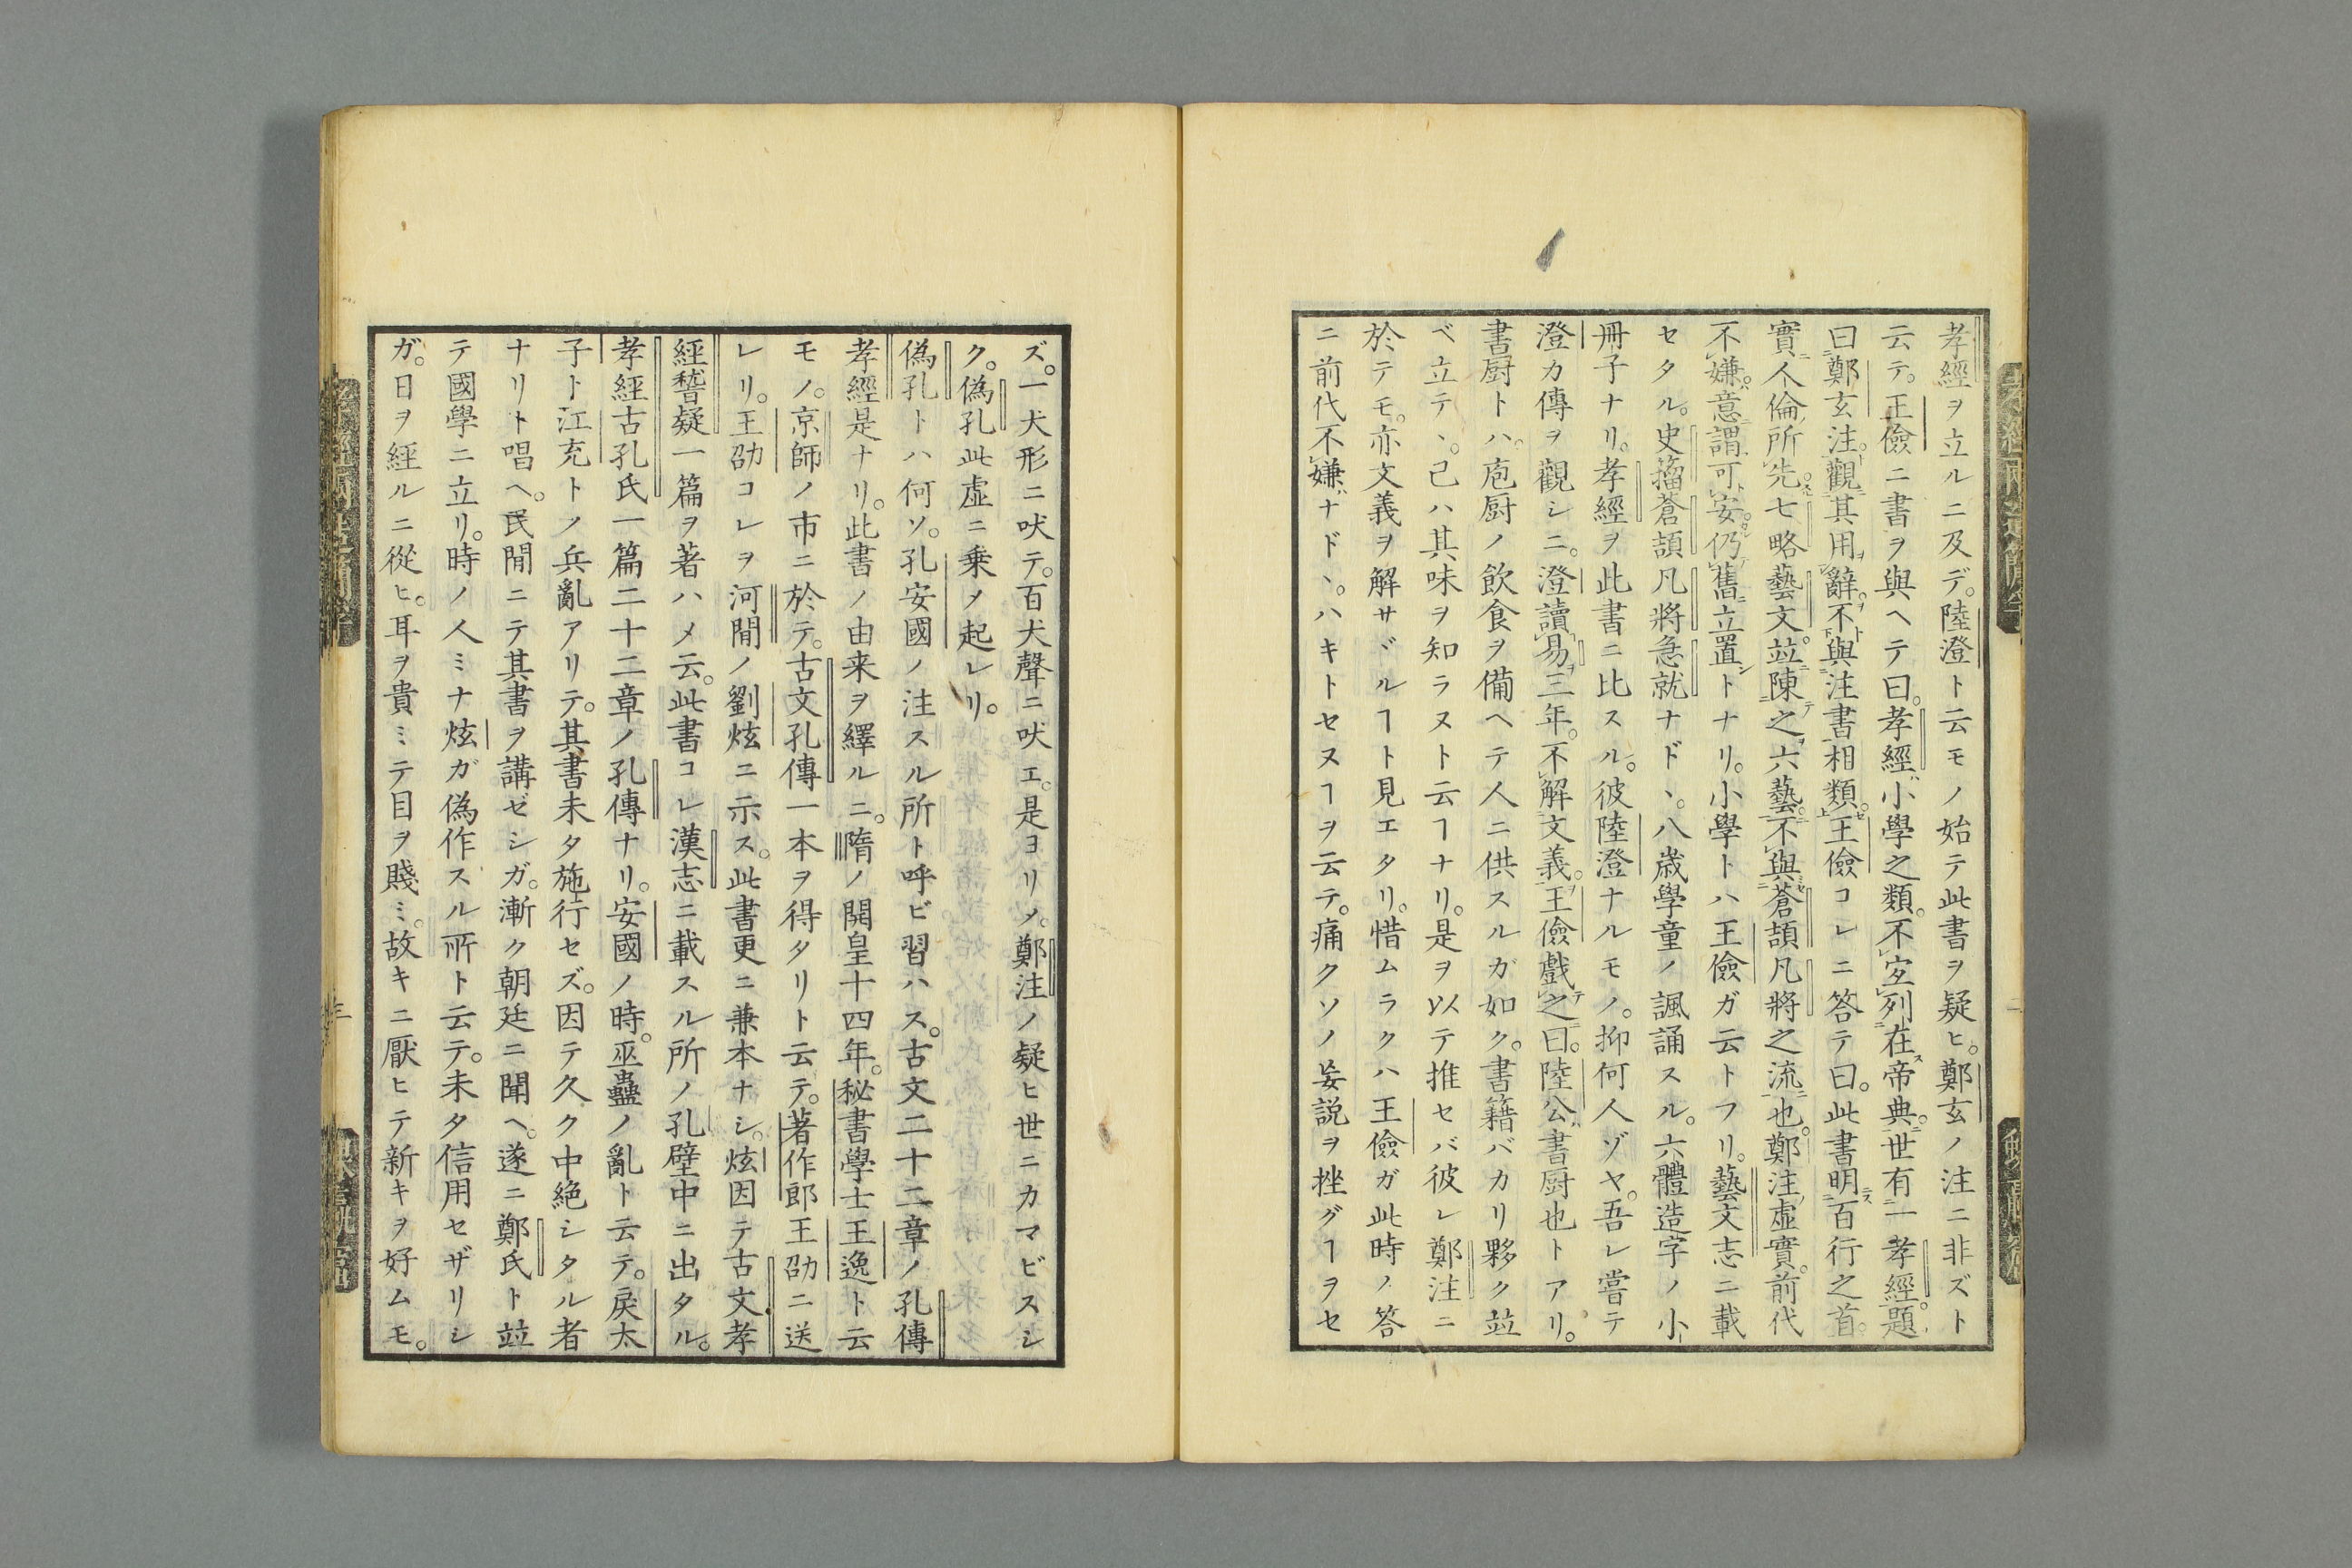 孝經ヲ立ルニ及デ。陸澄ト云モノ始テ此書ヲ疑ヒ。鄭玄ノ注ニ非ズト
云テ。王儉ニ書ヲ與ヘテ曰。孝經小學之類。不宐列在帝典。世有一孝經。題
曰鄭玄注。觀其用辭。不與注書相類。王儉コレニ答テ曰。此書明百行之首。
實人倫所先。七略藝文。竝陳之六藝。不與蒼頡凡將之流也。鄭注虛實。前代
不嫌。意謂可安。仍舊立置トナリ。小學トハ王儉ガ云トフリ。藝文志ニ載
セタル。史籀蒼頡凡將急就ナドヽ。八歳學童ノ諷誦スル。六體造字ノ小
冊子ナリ。孝經ヲ此書ニ比スル。彼陸澄ナルモノ。抑何人ゾヤ。吾レ嘗テ
澄カ傳ヲ觀シニ。澄讀易三年。不解文義。王儉戲之曰。陸公書厨也トアリ。
書厨トハ。庖厨ノ飲食ヲ備ヘテ人ニ供スルガ如ク。書籍バカリ夥ク竝
ベ立テヽ。己ハ其味ヲ知ラヌト云ヿナリ。是ヲ以テ推セバ彼レ鄭注ニ
於テモ。亦文義ヲ解サヾルヿト見エタリ。惜ムラクハ王儉ガ此時ノ答
ニ前代不嫌ナドヽ。ハキトセヌヿヲ云テ。痛クソノ妄説ヲ挫グヿヲセ
ズ。一犬形ニ吠テ。百犬聲ニ吠エ。是ヨリメ。鄭注ノ疑ヒ世ニカマビスシ
ク。偽孔此虛ニ乗メ起レリ。
偽孔トハ何ソ。孔安國ノ注スル所ト呼ビ習ハス。古文二十二章ノ孔傳
孝經是ナリ。此書ノ由来ヲ繹ルニ。隋ノ開皇十四年。秘書學士王逸ト云
モノ。京師ノ市ニ於テ。古文孔傳一本ヲ得タリト云テ。著作郎王劭ニ送
レリ。王劭コレヲ河間ノ劉炫ニ示ス。此書更ニ兼本ナシ。炫因テ古文孝
經稽疑一篇ヲ著ハメ云。此書コレ漢志ニ載スル所ノ孔壁中ニ出タル。
孝經古孔氏一篇二十二章ノ孔傳ナリ。安國ノ時。巫蠱ノ亂ト云テ。戾太
子ト江充トノ兵亂アリテ。其書未タ施行セズ。因テ久ク中絶シタル者
ナリト唱ヘ。民間ニテ其書ヲ講ゼシガ。漸ク朝廷ニ聞ヘ。遂ニ鄭氏ト竝
テ國學ニ立リ。時ノ人ミナ炫ガ偽作スル所ト云テ。未タ信用セザリシ
ガ。日ヲ經ルニ從ヒ。耳ヲ貴ミテ目ヲ賤ミ。故キニ厭ヒテ新キヲ好ムモ。